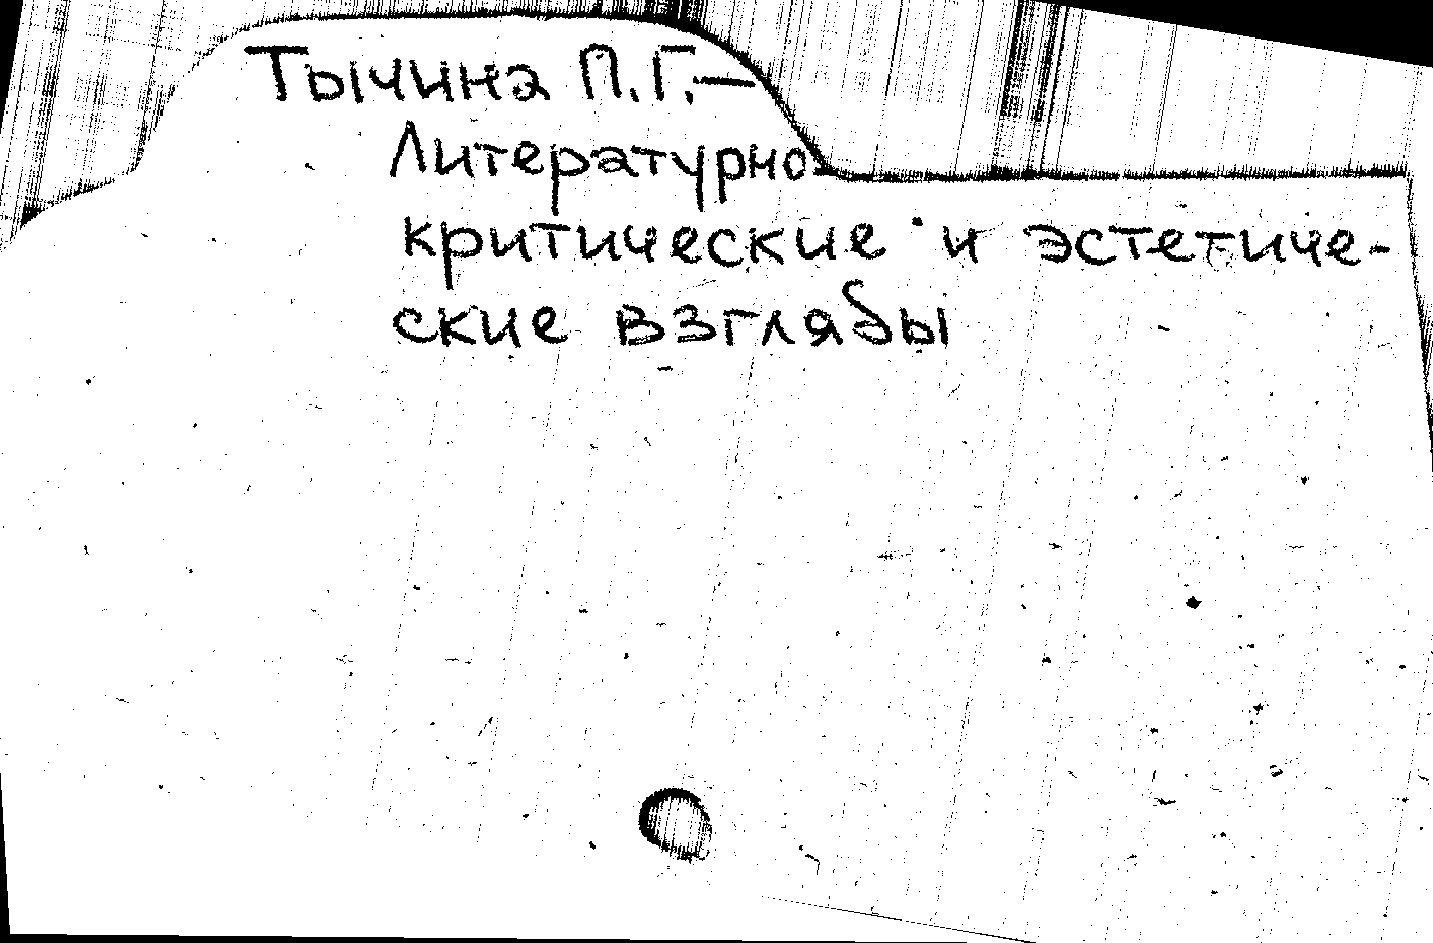 Тычина П.Г.—
Литературно-
критические и эстетиче-
ские взгляды